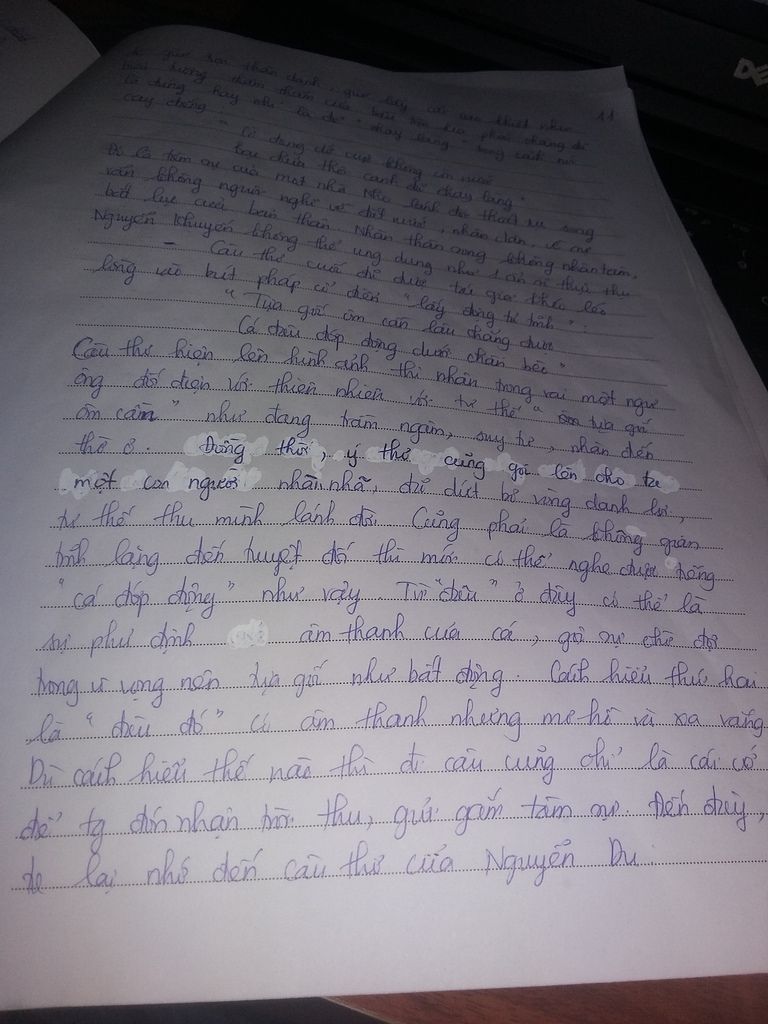 11
DE
"Cờ dang dở cuộc không còn nước
Bạc chửa thâu canh đã chạy làng"
Đó là tâm sự của một nhà Nho lánh đời thoát tục song
vẫn không nguôi nghĩ về đất nước, nhân dân, về sự
bất lực của bản thân. Nhàn thân song không nhàn tâm,
Nguyễn Khuyến không thể ung dung như 1 ẩn sĩ thực thụ
- Câu thơ cuối đã được tác giả khéo léo
lồng vào bút pháp cổ điển "lấy động tả tĩnh":
"Tựa gối ôm cần lâu chẳng được
Cá đâu đớp động dưới chân bèo"
Câu thơ hiện lên hình ảnh thi nhân trong vai một ngư
ông đối diện với thiên nhiên với tư thế " tựa gối
ôm cần" như đang trầm ngâm, suy tư, nhàn đến
thờ ơ. Đồng thời, ý thơ cũng gợi lên cho ta
một con người nhàn nhã, đã dứt bỏ vòng danh lợi,
tư thế thu mình lánh đời. Cũng phải là không gian
tĩnh lặng đến tuyệt đối thì mới có thể nghe được tiếng
"cá đớp động" như vậy. Từ "đâu" ở đây có thể là
sự phủ định âm thanh của cá, gợi sự chờ đợi
trong vô vọng nên tựa gối như bất động. Cách hiểu thứ hai
là "đâu đó" có âm thanh nhưng mơ hồ và xa vắng
Dù cách hiểu thế nào thì đi câu cũng chỉ là cái cớ
để tg đón nhận trời thu, gửi gắm tâm sự. Đến đây,
ta lại nhớ đến câu thơ của Nguyễn Du